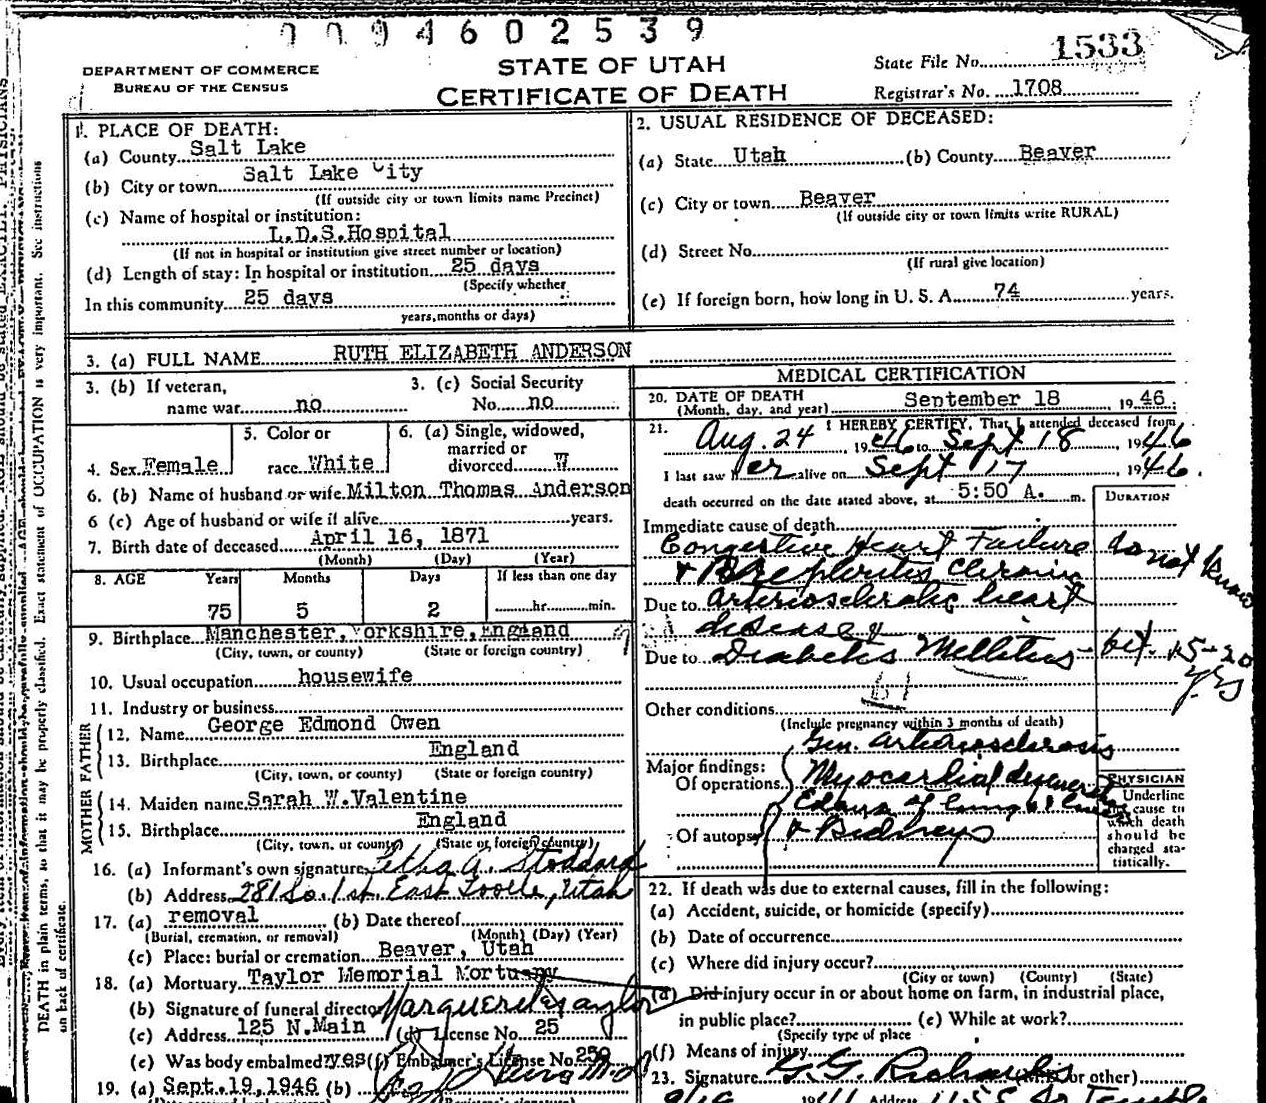 0094602539
1533
DEPARTMENT OF COMMERCE
BUREAU OF THE CENSUS
STATE OF UTAH
CERTIFICATE OF DEATH
State File No.
Registrar's No. 1708
1. PLACE OF DEATH:
(a) County Salt Lake
(b) City or town Salt Lake City
(If outside city or town limits name Precinct)
(c) Name of hospital or institution:
L.D.S.Hospital
(If not in hospital or institution give street number or location)
(d) Length of stay: In hospital or institution 25 days
(Specify whether
In this community 25 days
years, months or days)
2. USUAL RESIDENCE OF DECEASED:
(a) State Utah (b) County Beaver
(c) City or town Beaver
(If outside city or town limits write RURAL)
(d) Street No.
(If rural give location)
(e) If foreign born, how long in U. S. A. 74 years.
3. (a) FULL NAME RUTH ELIZABETH ANDERSON
3. (b) If veteran, name war no
3. (c) Social Security No. no
4. Sex Female
5. Color or race White
6. (a) Single, widowed, married or divorced W
6. (b) Name of husband or wife Milton Thomas Anderson
6 (c) Age of husband or wife if alive years.
7. Birth date of deceased April 16, 1871
(Month) (Day) (Year)
8. AGE Years Months Days If less than one day
75 5 2 hr. min.
9. Birthplace Manchester, Yorkshire, England
(City, town, or county) (State or foreign country)
10. Usual occupation housewife
11. Industry or business
FATHER
12. Name George Edmond Owen
13. Birthplace England
(City, town, or county) (State or foreign country)
MOTHER
14. Maiden name Sarah W.Valentine
15. Birthplace England
(City, town, or county) (State or foreign country)
16. (a) Informant's own signature Stoddard
(b) Address 281 So. 1st. East Tooele, Utah
17. (a) removal (b) Date thereof
(Burial, cremation, or removal) (Month) (Day) (Year)
(c) Place: burial or cremation Beaver, Utah
18. (a) Mortuary Taylor Memorial Mortuary
(b) Signature of funeral director Taylor
(c) Address 125 N.Main (d) License No. 25
(e) Was body embalmed? yes (f) Embalmer's License No. 250
19. (a) Sept.19,1946 (b)
MEDICAL CERTIFICATION
20. DATE OF DEATH
(Month, day, and year) September 18, 1946
21. I HEREBY CERTIFY, That I attended deceased from
Aug. 24, 1946 to Sept 18 1946
I last saw her alive on Sept 17 1946.
death occurred on the date stated above, at 5:50 A. m.
DURATION
Immediate cause of death
Congestive Heart Failure do not know
& chronic
Due to arteriosclerotic heart
disease &
Due to Diabetis Mellitus - bet. 15-20 yrs
Other conditions
(Include pregnancy within 3 months of death)
Gen. arteriosclerosis
Major findings:
Of operations Myocardial
Edema of lungs & liver
Of autopsy & Kidneys
PHYSICIAN
Underline the cause to which death should be charged statistically.
22. If death was due to external causes, fill in the following:
(a) Accident, suicide, or homicide (specify)
(b) Date of occurrence
(c) Where did injury occur?
(City or town) (County) (State)
(d) Did injury occur in or about home on farm, in industrial place,
in public place? (e) While at work?
(Specify type of place
(f) Means of injury
23. Signature G. G. Richards (M.D. or other)
9/19 Address 115 E So Temple
DEATH in plain terms, so that it may be properly classified. Exact statement of OCCUPATION is very important. See instructions
on back of certificate.